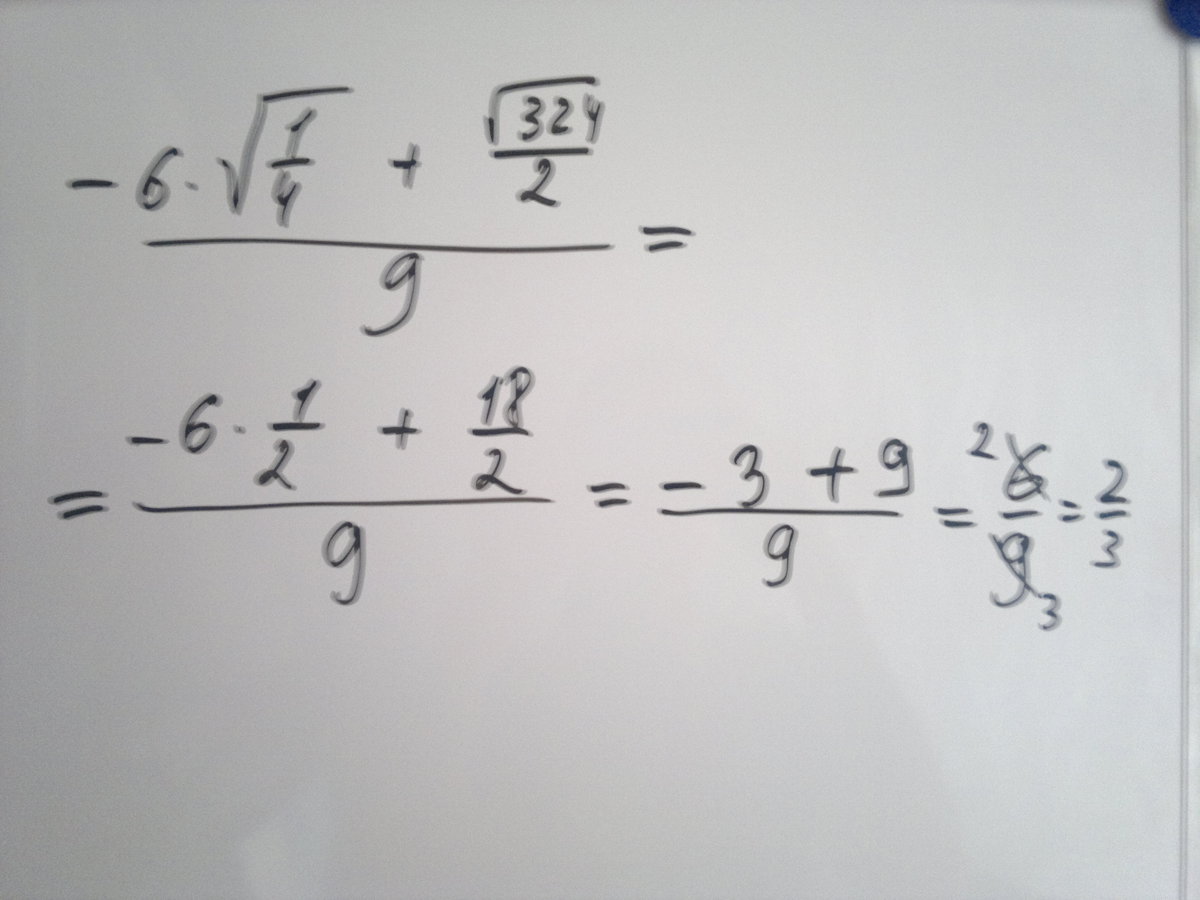 (-6 · √(1/4) + √324/2)/9 =
= (-6 · 1/2 + 18/2)/9 = (-3 + 9)/9 = ²6/9₃ = 2/3